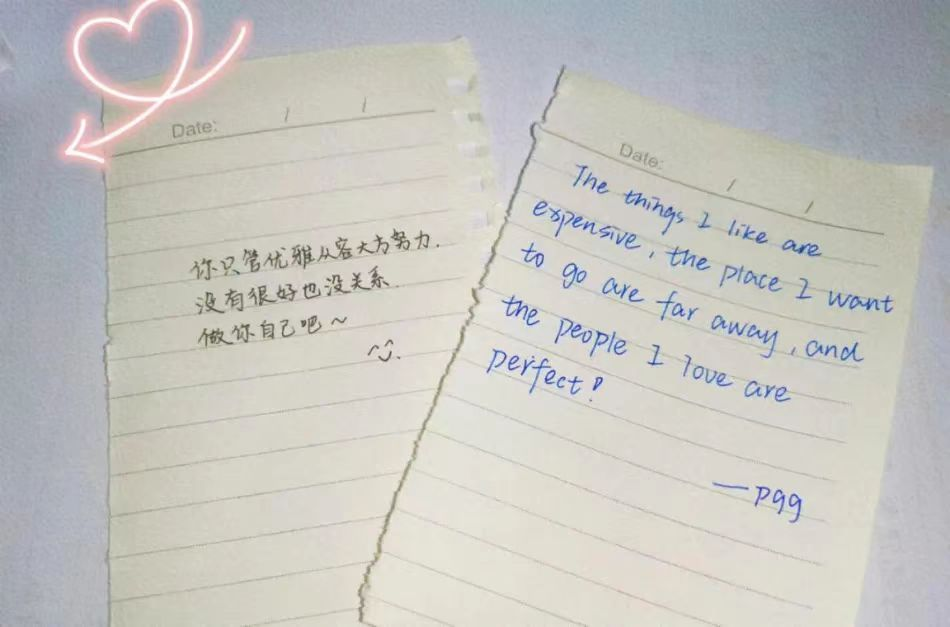 Date: / /
你只管优雅从容大方努力.
没有很好也没关系.
做你自己吧~
Date: / /
The things I like are
expensive, the place I want
to go are far away, and
the people I love are
perfect!
—pqq